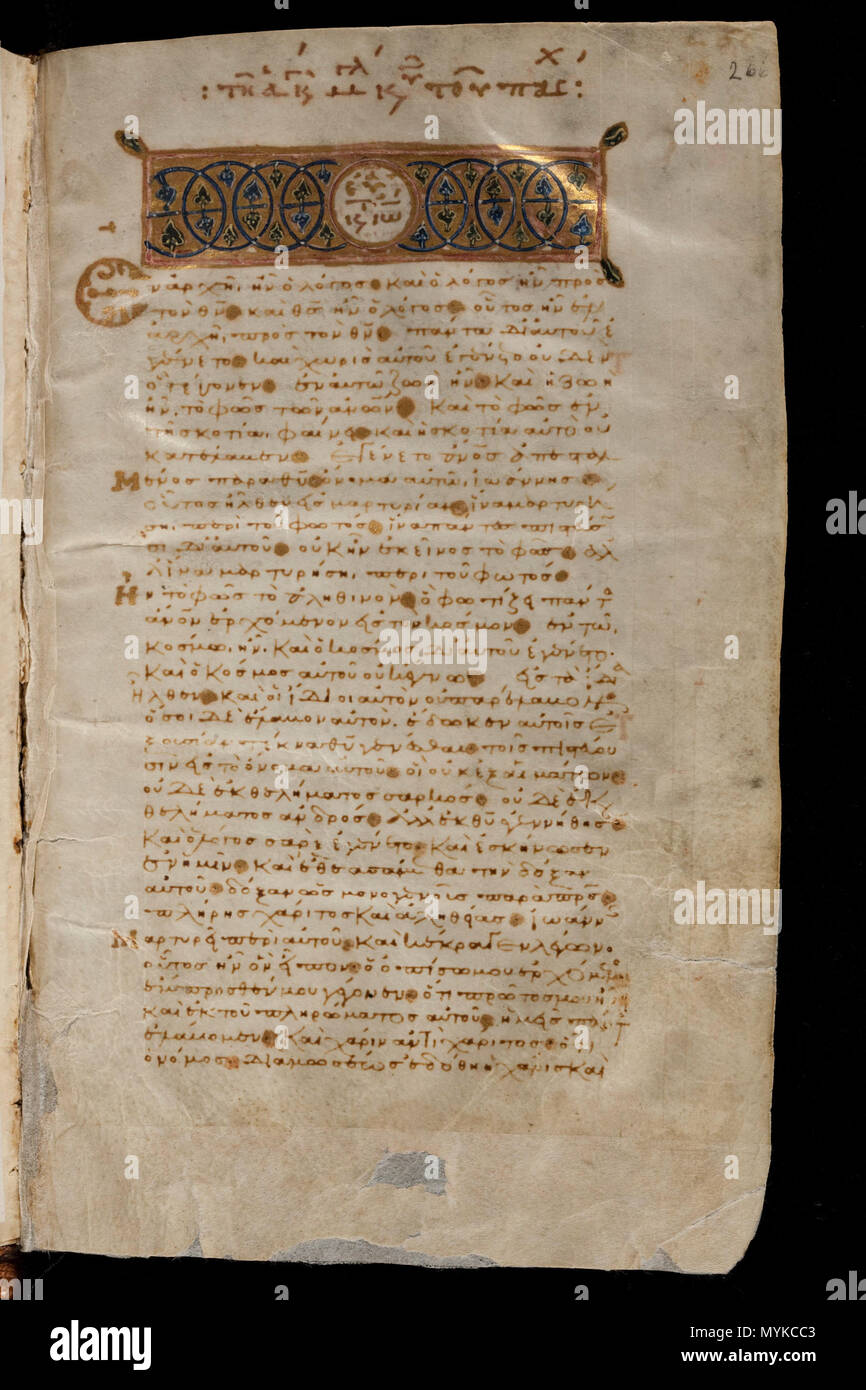 : τῇ ἁγίᾳ κ μγλ κυ τοῦ πάσχ :
266
ν ἀρχῆ, ἦν ὁ λόγος· καὶ ὁ λόγος ἦν πρὸσ
τὸν θν· καὶ θσ ἦν ὁ λόγος· οὗτος ἦν ἐν
ἀρχῆ, πρὸς τὸν θν· πάντα δι αὐτοῦ ἐ
γένετο· καὶ χωρὶς αὐτοῦ ἐγένετο οὐδὲν
ὃ γέγονεν· ἐν αὐτῶ ζωὴ ἦν· καὶ ἡ ζωὴ
ἦν, τὸ φῶς τῶν ἀνων· καὶ τὸ φῶς ἐν
τῆ σκοτία, φαίνει· καὶ ἡ σκοτία αὐτὸ οὐ
κατέλαβεν· Ἐγένετο ἀνος ἀπεσταλ
Μένος παρὰ θυ· ὄνομα αὐτῶ, ἰωάννης·
οὗτος ἦλθεν εἰς μαρτυρίαν· ἵνα μαρτυρή
ση, περὶ τοῦ φωτός· ἵνα πάντες πιστεύσω
σι δι αὐτοῦ· οὐκ ἦν ἐκεῖνος τὸ φῶς· ἀλ
λ ἵνα μαρτυρήση, περὶ τοῦ φωτός·
Ἦν τὸ φῶς τὸ ἀληθινὸν· ὃ φωτίζει πάντα
ἀνον ἐρχόμενον εἰς τὸν κόσμον· ἐν τῶ,
κόσμω, ἦν· καὶ ὁ κόσμος, δι αὐτοῦ ἐγένετο·
καὶ ὁ κόσμος αὐτὸν οὐκ ἔγνω· εἰς τὰ ἴδια
ἦλθεν· καὶ οἱ ἴδιοι αὐτὸν οὐ παρέλαβον·
ὅσοι δὲ ἔλαβον αὐτόν, ἔδωκεν αὐτοῖς ἐ
ξουσίαν τέκνα θυ γενέσθαι· τοῖς πιστεύου
σιν εἰς τὸ ὄνομα αὐτοῦ· οἳ οὐκ ἐξ αἱμάτων·
οὐδὲ ἐκ θελήματος σαρκὸς· οὐδὲ ἐκ
θελήματος ἀνδρός· ἀλλ ἐκ θυ ἐγεννήθησαν·
Καὶ ὁ λόγος σὰρξ ἐγένετο· καὶ ἐσκήνωσεν
ἐν ἡμῖν· καὶ ἐθεασάμεθα τὴν δόξαν
αὐτοῦ· δόξαν ὡς μονογενοῦς παρὰ πρς·
πλήρης χάριτος καὶ ἀληθείας· ἰωάννης
Μαρτυρεῖ περὶ αὐτοῦ· καὶ κέκραγεν λέγων·
οὗτος ἦν ὃν εἶπον· ὁ ὀπίσω μου ἐρχόμενος
ἔμπροσθέν μου γέγονεν· ὅτι πρῶτός μου ἦν·
καὶ ἐκ τοῦ πληρώματος αὐτοῦ, ἡμεῖς πάντες
ἐλάβομεν· καὶ χάριν ἀντὶ χάριτος· ὅτι
ὁ νόμος, διὰ μωσέως ἐδόθη· ἡ χάρις καὶ
alamy
Image ID: MYKCC3
www.alamy.com